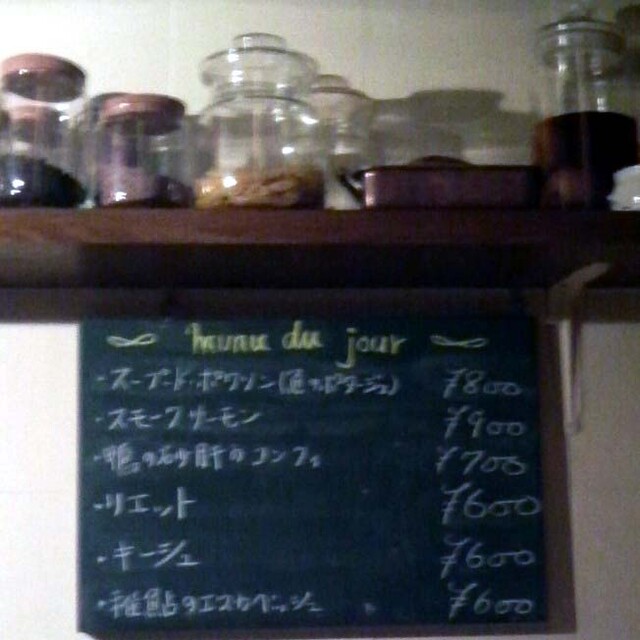 menu du jour
・スープ・ド・ポワソン(魚のポタージュ) ¥800
・スモークサーモン ¥900
・鴨の砂肝のコンフィ ¥700
・リエット ¥600
・キーシュ ¥600
・稚鮎のエスカベッシュ ¥600